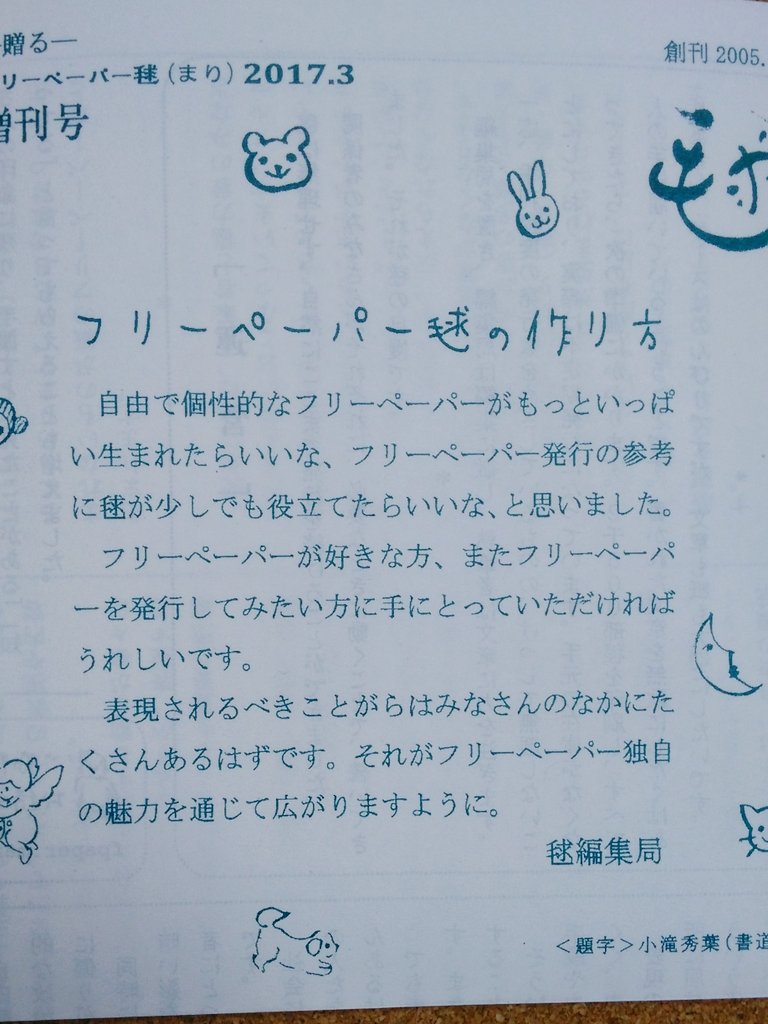 贈る―
リーペーパー毬(まり)2017.3
創刊 2005.
増刊号
毬
フリーペーパー毬の作り方
自由で個性的なフリーペーパーがもっといっぱ
い生まれたらいいな、フリーペーパー発行の参考
に毬が少しでも役立てたらいいな、と思いました。
フリーペーパーが好きな方、またフリーペーパ
ーを発行してみたい方に手にとっていただければ
うれしいです。
表現されるべきことがらはみなさんのなかにた
くさんあるはずです。それがフリーペーパー独自
の魅力を通じて広がりますように。
毬編集局
＜題字＞小滝秀葉(書道